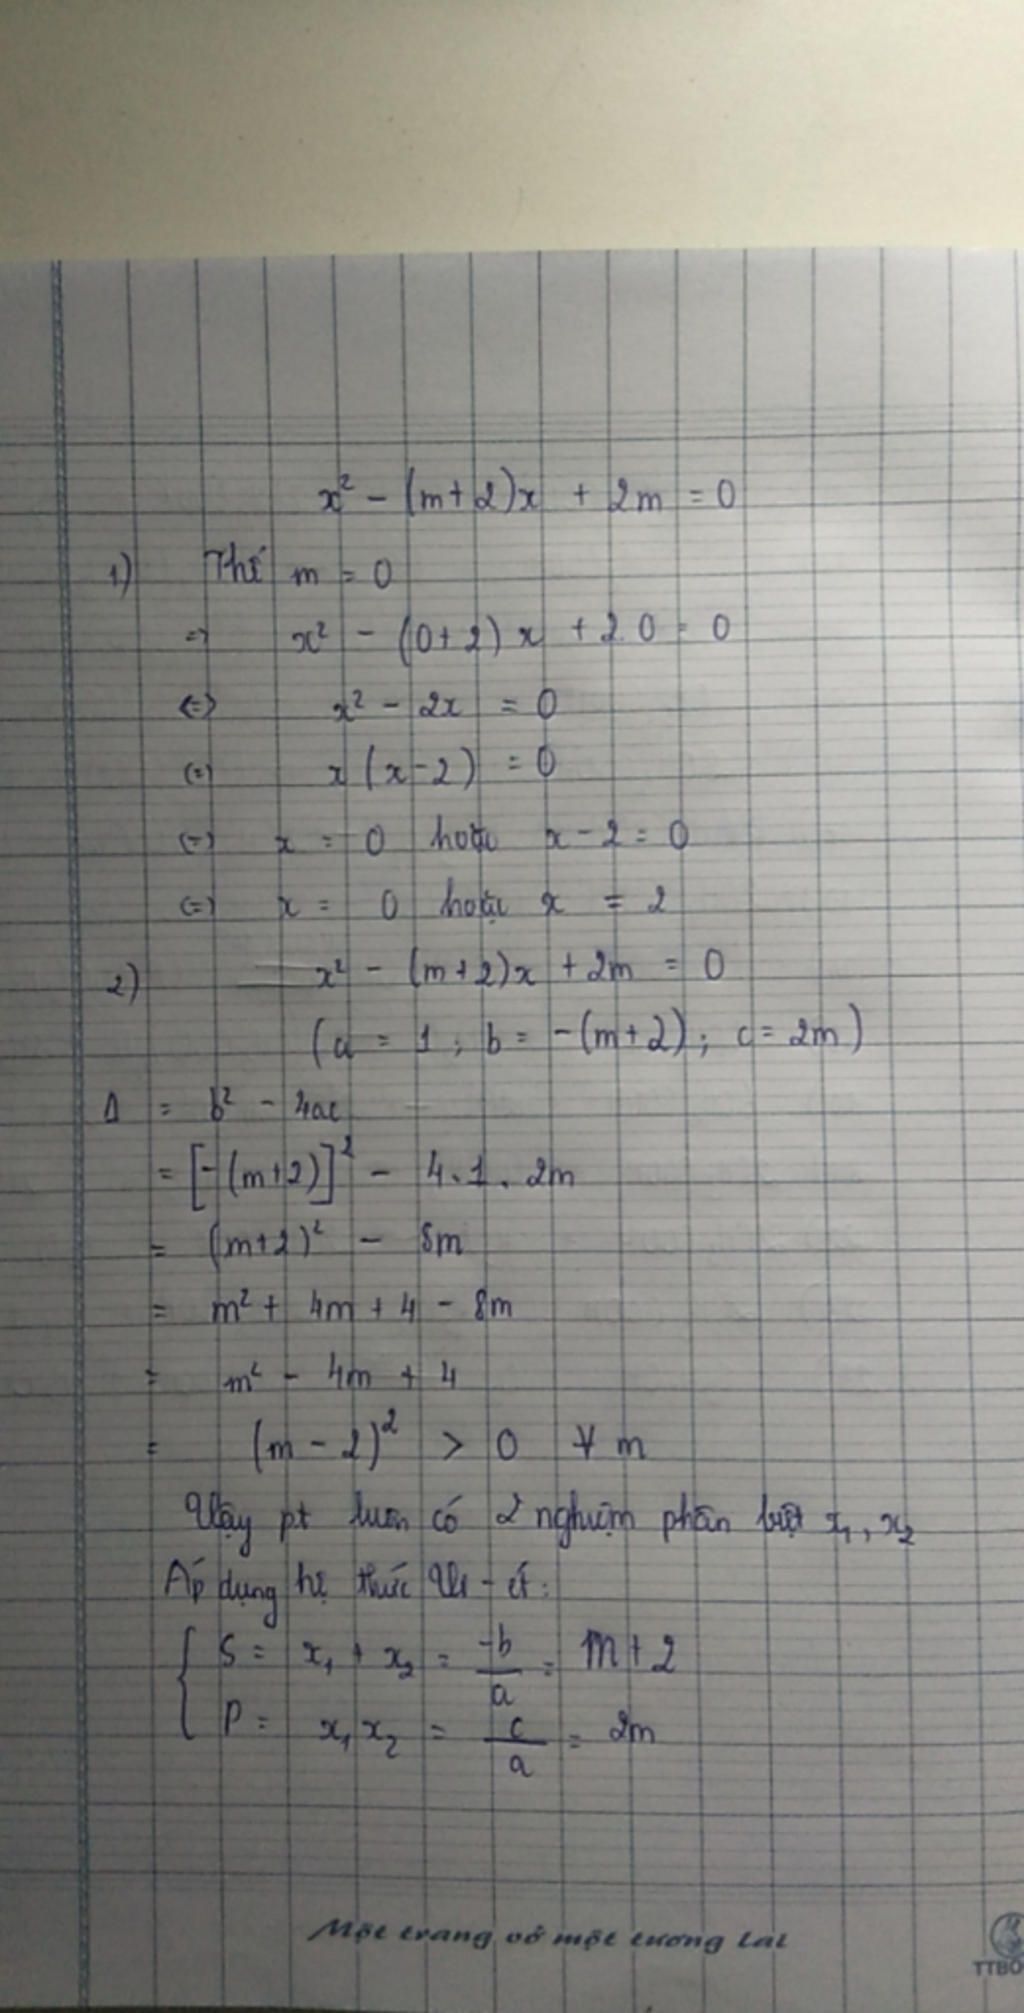 x² - (m+2)x + 2m = 0
1) Thế m = 0
=> x² - (0+2)x + 2.0 = 0
<=> x² - 2x = 0
<=> x(x-2) = 0
<=> x = 0 hoặc x - 2 = 0
<=> x = 0 hoặc x = 2
2) x² - (m+2)x + 2m = 0
(a = 1; b = -(m+2); c = 2m)
Δ = b² - 4ac
= [-(m+2)]² - 4.1.2m
= (m+2)² - 8m
= m² + 4m + 4 - 8m
= m² - 4m + 4
= (m - 2)² > 0 ∀ m
Vậy pt luôn có 2 nghiệm phân biệt x₁, x₂
Áp dụng hệ thức Vi-ét:
{ S = x₁ + x₂ = -b/a = m + 2
P = x₁x₂ = c/a = 2m
Một trang vở một tương lai
TTBO